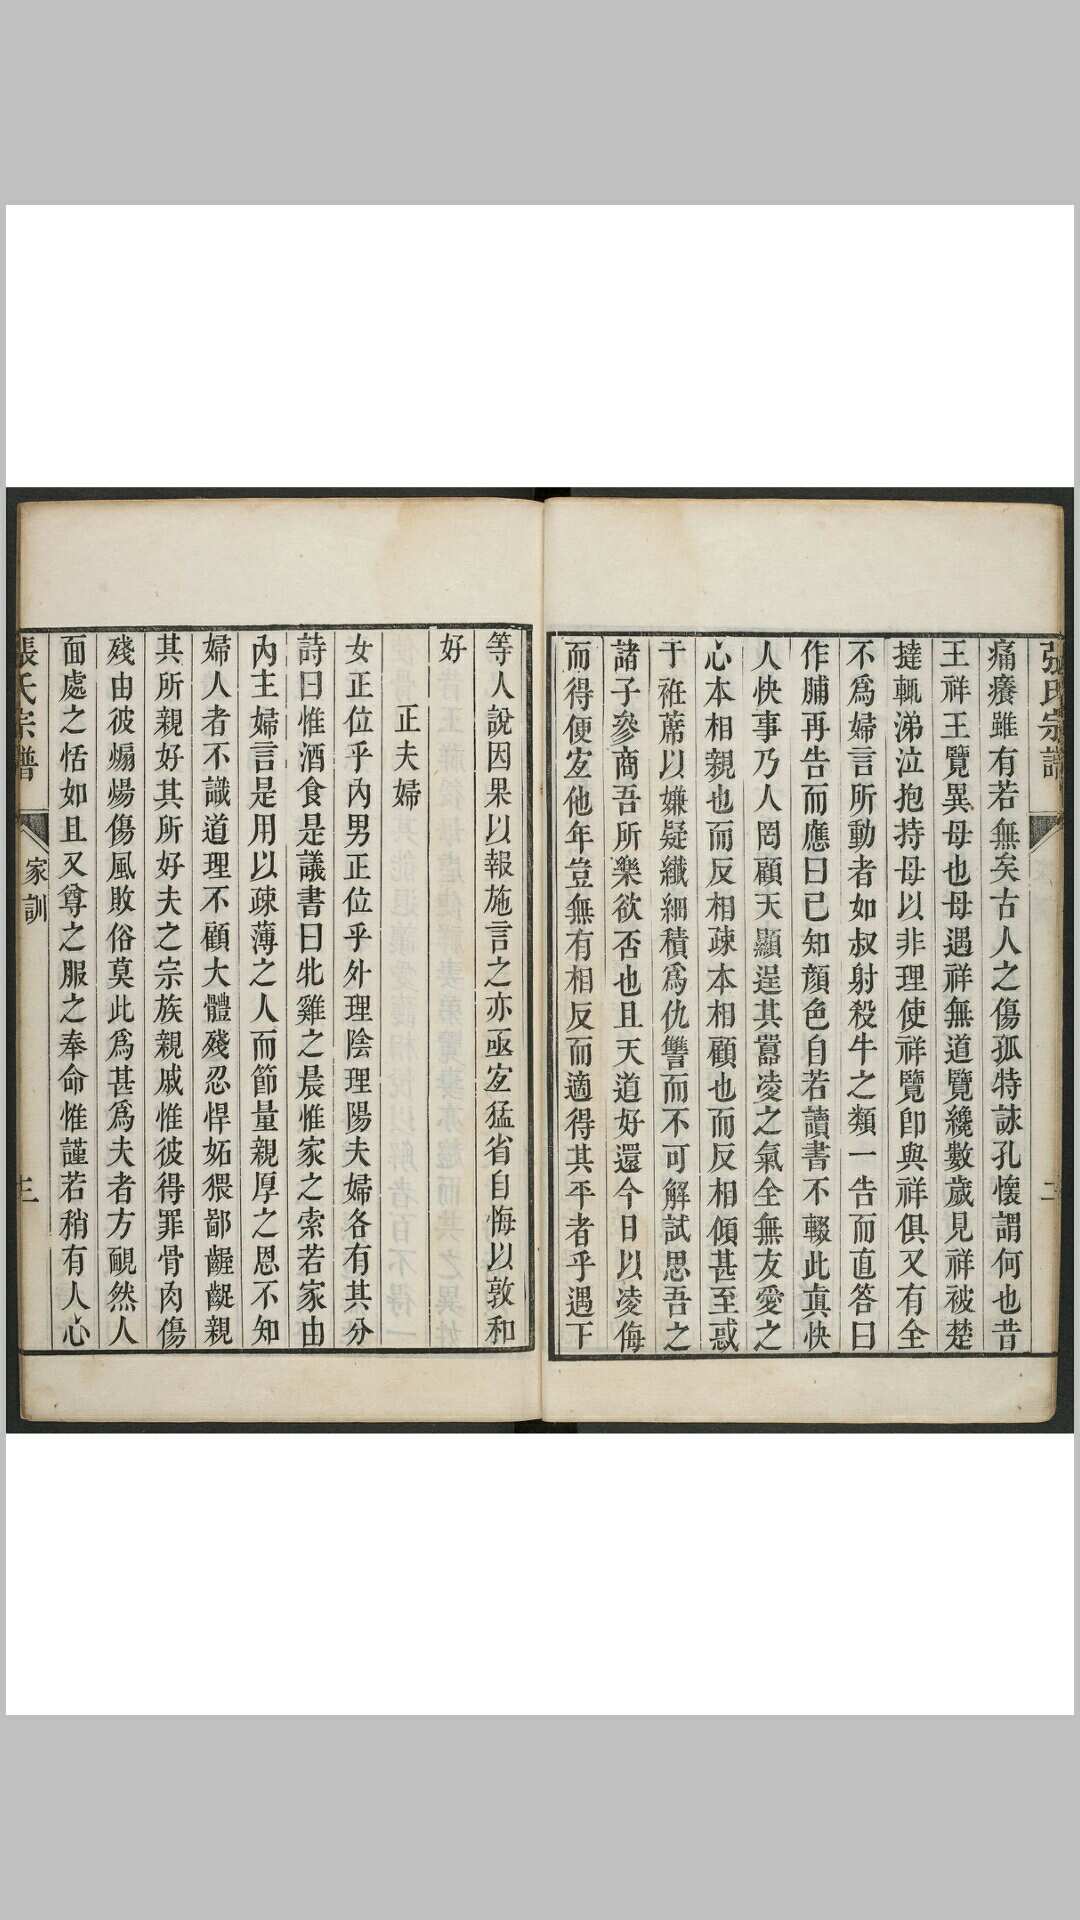 張氏宗譜
二
痛癢雖有若無矣古人之傷孤特詠孔懷謂何也昔
王祥王覽異母也母遇祥無道覽纔數歲見祥被楚
撻輒涕泣抱持母以非理使祥覽卽與祥俱又有全
不爲婦言所動者如叔射殺牛之類一告而直答曰
作脯再告而應曰已知顏色自若讀書不輟此眞快
人快事乃人罔顧天顯逞其囂凌之氣全無友愛之
心本相親也而反相疎本相顧也而反相傾甚至惑
于袵蓆以嫌疑纖細積爲仇讐而不可解試思吾之
諸子參商吾所樂欲否也且天道好還今日以凌侮
而得便宐他年豈無有相反而適得其平者乎遇下
等人說因果以報施言之亦亟宐猛省自悔以敦和
好
正夫婦
女正位乎內男正位乎外理陰理陽夫婦各有其分
詩曰惟酒食是議書曰牝雞之晨惟家之索若家由
內主婦言是用以疎薄之人而節量親厚之恩不知
婦人者不識道理不顧大體殘忍悍妬猥鄙齷齪親
其所親好其所好夫之宗族親戚惟彼得罪骨肉傷
殘由彼煽煬傷風敗俗莫此爲甚爲夫者方靦然人
面處之恬如且又尊之服之奉命惟謹若稍有人心
張氏宗譜
家訓
三